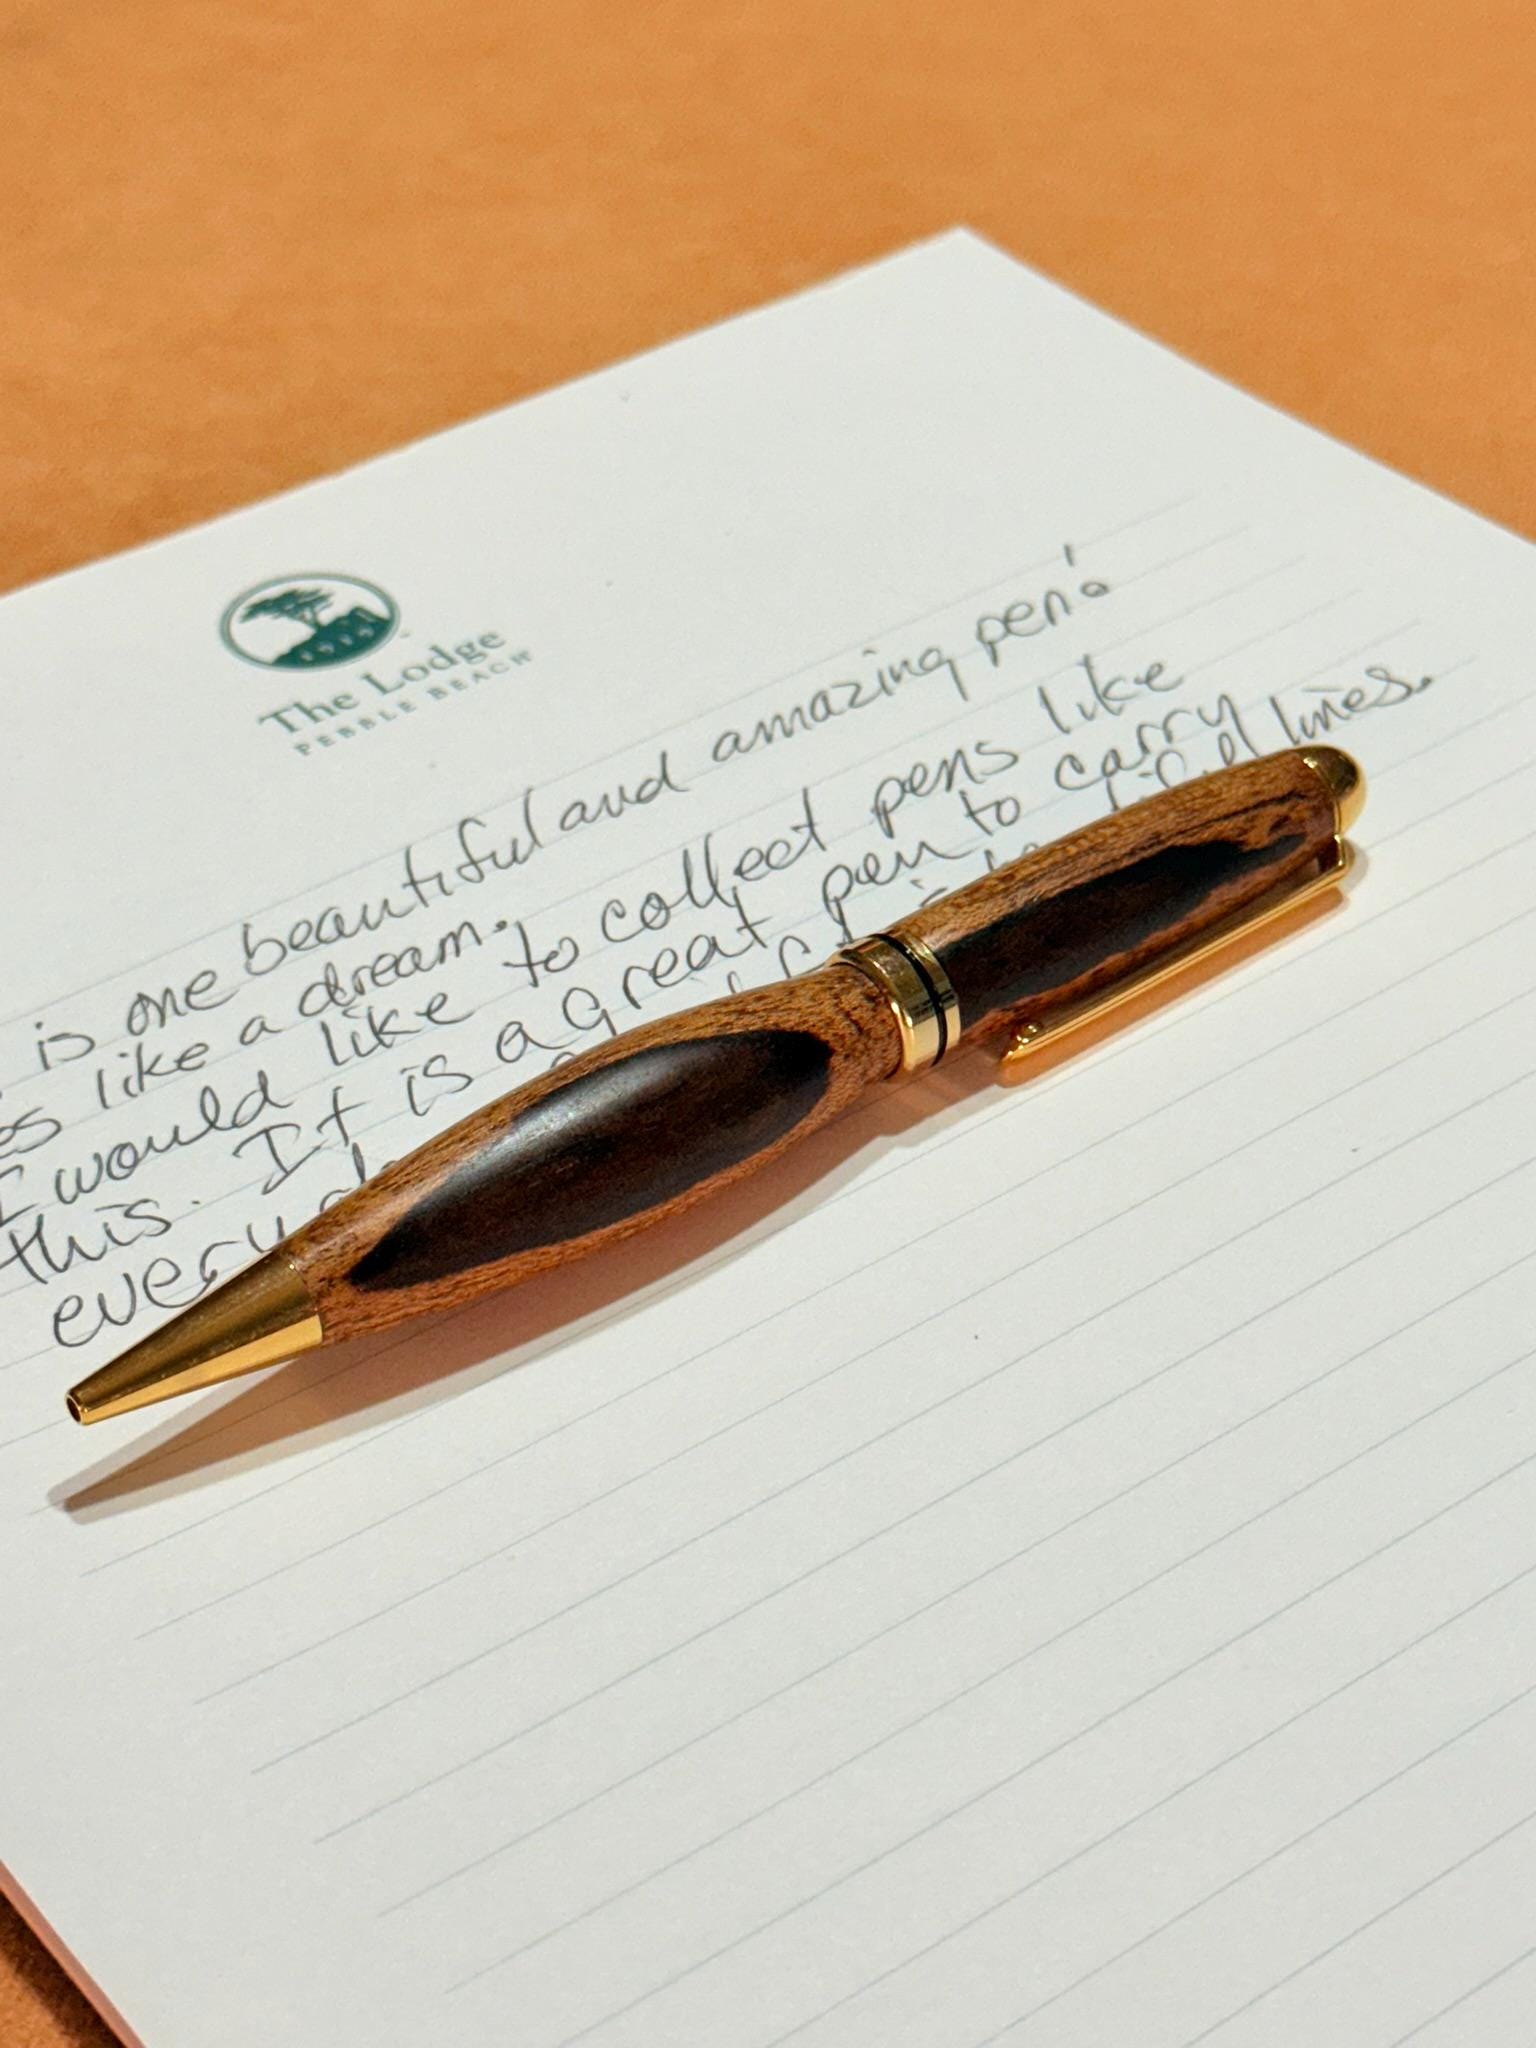 1919
The Lodge
PEBBLE BEACH
is one beautiful and amazing pen!
like a dream.
I would like to collect pens like
this. It is a great pen to carry
every lines.